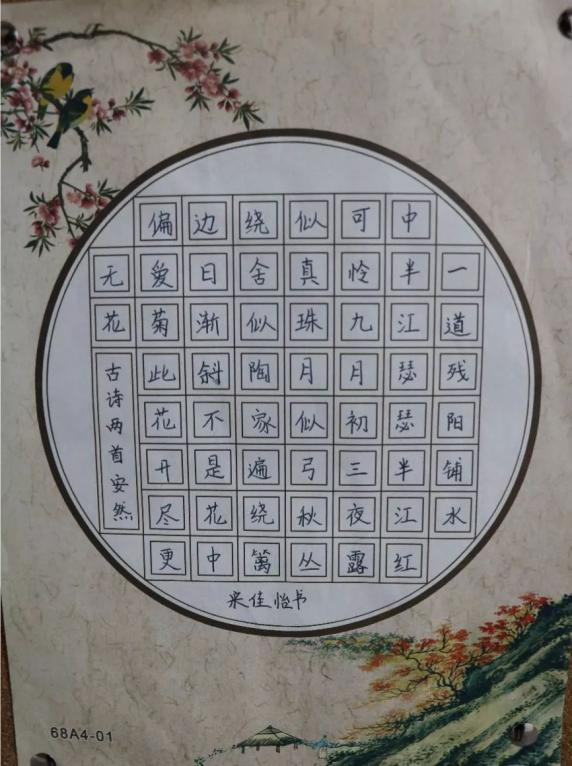 一道残阳铺水
中半江瑟瑟半江红
可怜九月初三夜露
似真珠月似弓秋丛
绕舍似陶家遍绕篱
边日渐斜不是花中
偏爱菊此花开尽更
无花
古诗两首安然
佳怡书
68A4-01